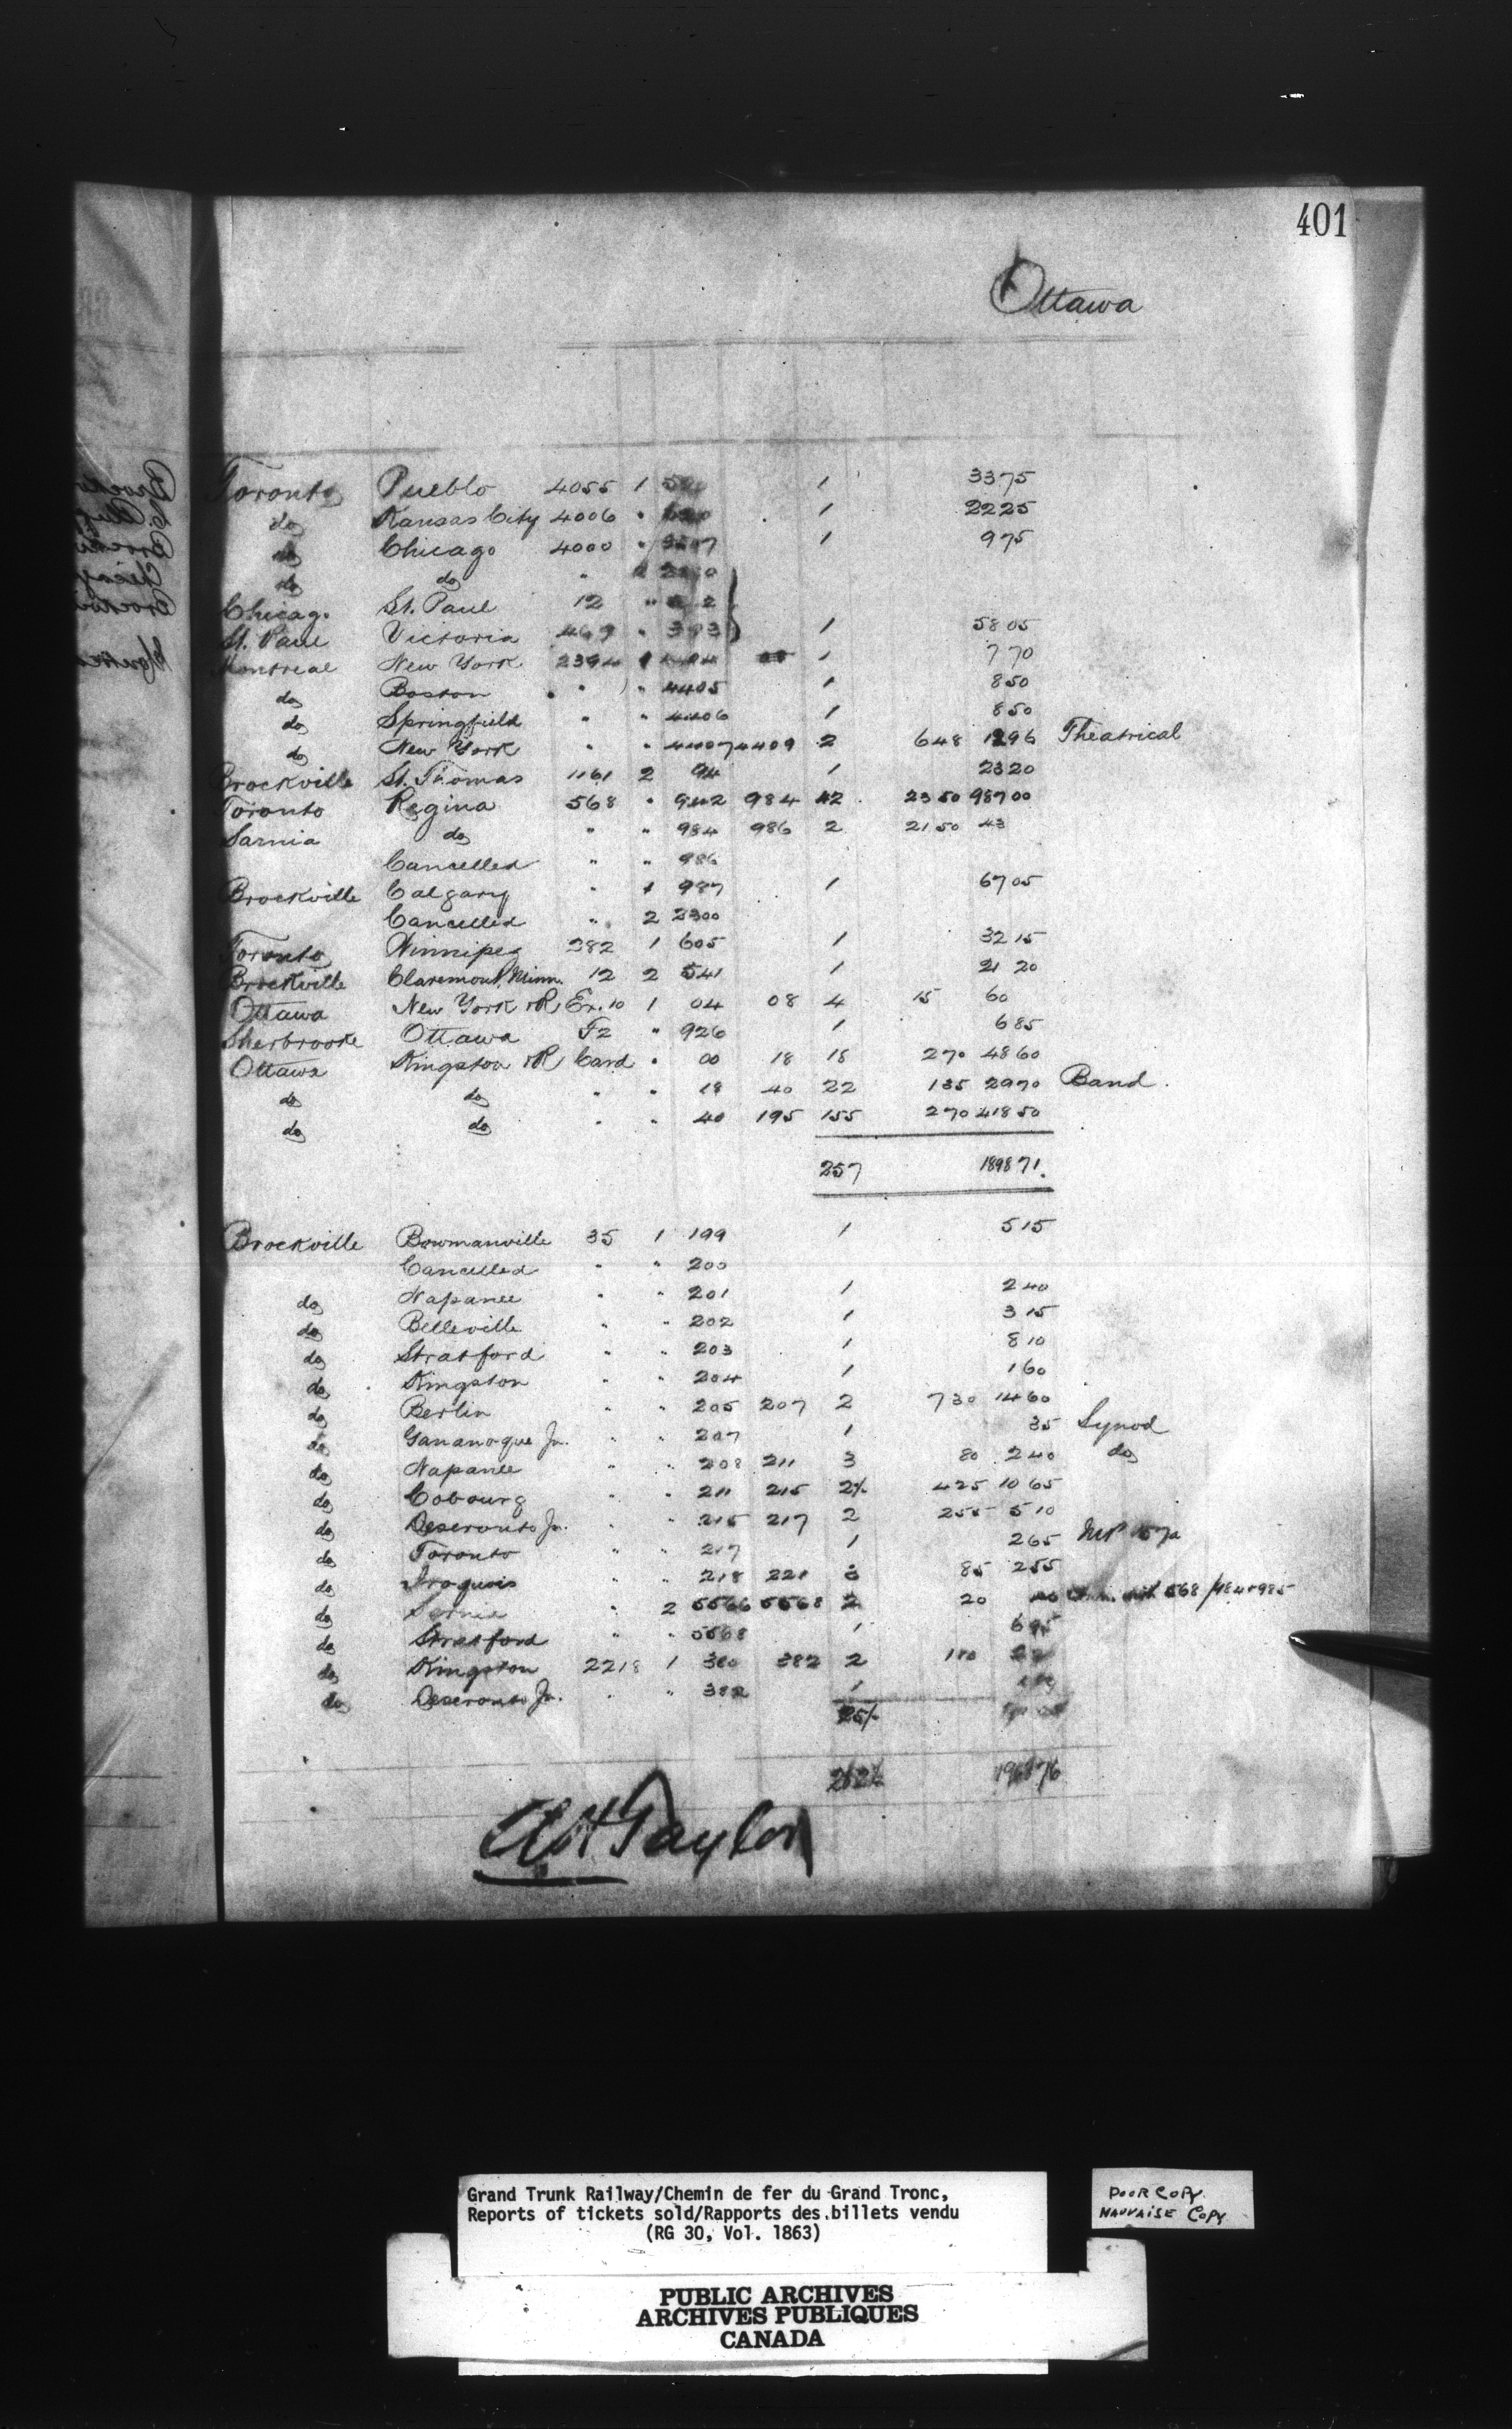 401
Ottawa
Toronto Pueblo 4055 1 1 33 75
do Kansas City 4006 " 1 22 25
do Chicago 4000 " 1 9 75
do do "
Chicago St. Paul 12 "
St. Paul Victoria 469 " 393 1 58 05
Montreal New York 2394 1 7 70
do Boston " " 4405 1 8 50
do Springfield " " 4406 1 8 50
do New York " " 4407 4409 2 6 48 12 96 Theatrical
Brockville St. Thomas 1161 2 94 1 23 20
Toronto Regina 568 " 942 984 42 23 50 987 00
Sarnia do " " 984 986 2 21 50 43
Cancelled " " 986
Brockville Calgary " 1 987 1 67 05
Cancelled " 2 2300
Toronto Winnipeg 282 1 605 1 32 15
Brockville Claremont, Minn. 12 2 541 1 21 20
Ottawa New York R Ex. 10 1 04 08 4 15 60
Sherbrooke Ottawa F2 " 926 1 6 85
Ottawa Kingston R Card " 00 18 18 2 70 48 60
do do " " 18 40 22 1 35 29 70 Band.
do do " " 40 195 155 2 70 418 50
257 1898 71.
Brockville Bowmanville 35 1 199 1 5 15
Cancelled " " 200
do Napanee " " 201 1 2 40
do Belleville " " 202 1 3 15
do Stratford " " 203 1 8 10
do Kingston " " 204 1 1 60
do Berlin " " 205 207 2 7 30 14 60
do Gananoque Jn. " " 207 1 35 Synod
do Napanee " " 208 211 3 80 2 40 do
do Cobourg " " 211 215 4 25 10 65
do Deseronto Jn. " " 215 217 2 2 55 5 10
do Toronto " " 217 1 2 65
do Iroquois " " 218 221 3 85 2 55
do Sarnia " 2 5566 5568 2 20 568
do Stratford " " 5568 1
do Kingston 2218 1 380 382 2
do Deseronto Jn. " " 382 1
A H Taylor
Grand Trunk Railway/Chemin de fer du Grand Tronc,
Reports of tickets sold/Rapports des billets vendu
(RG 30, Vol. 1863)
POOR COPY.
MAUVAISE COPY
PUBLIC ARCHIVES
ARCHIVES PUBLIQUES
CANADA